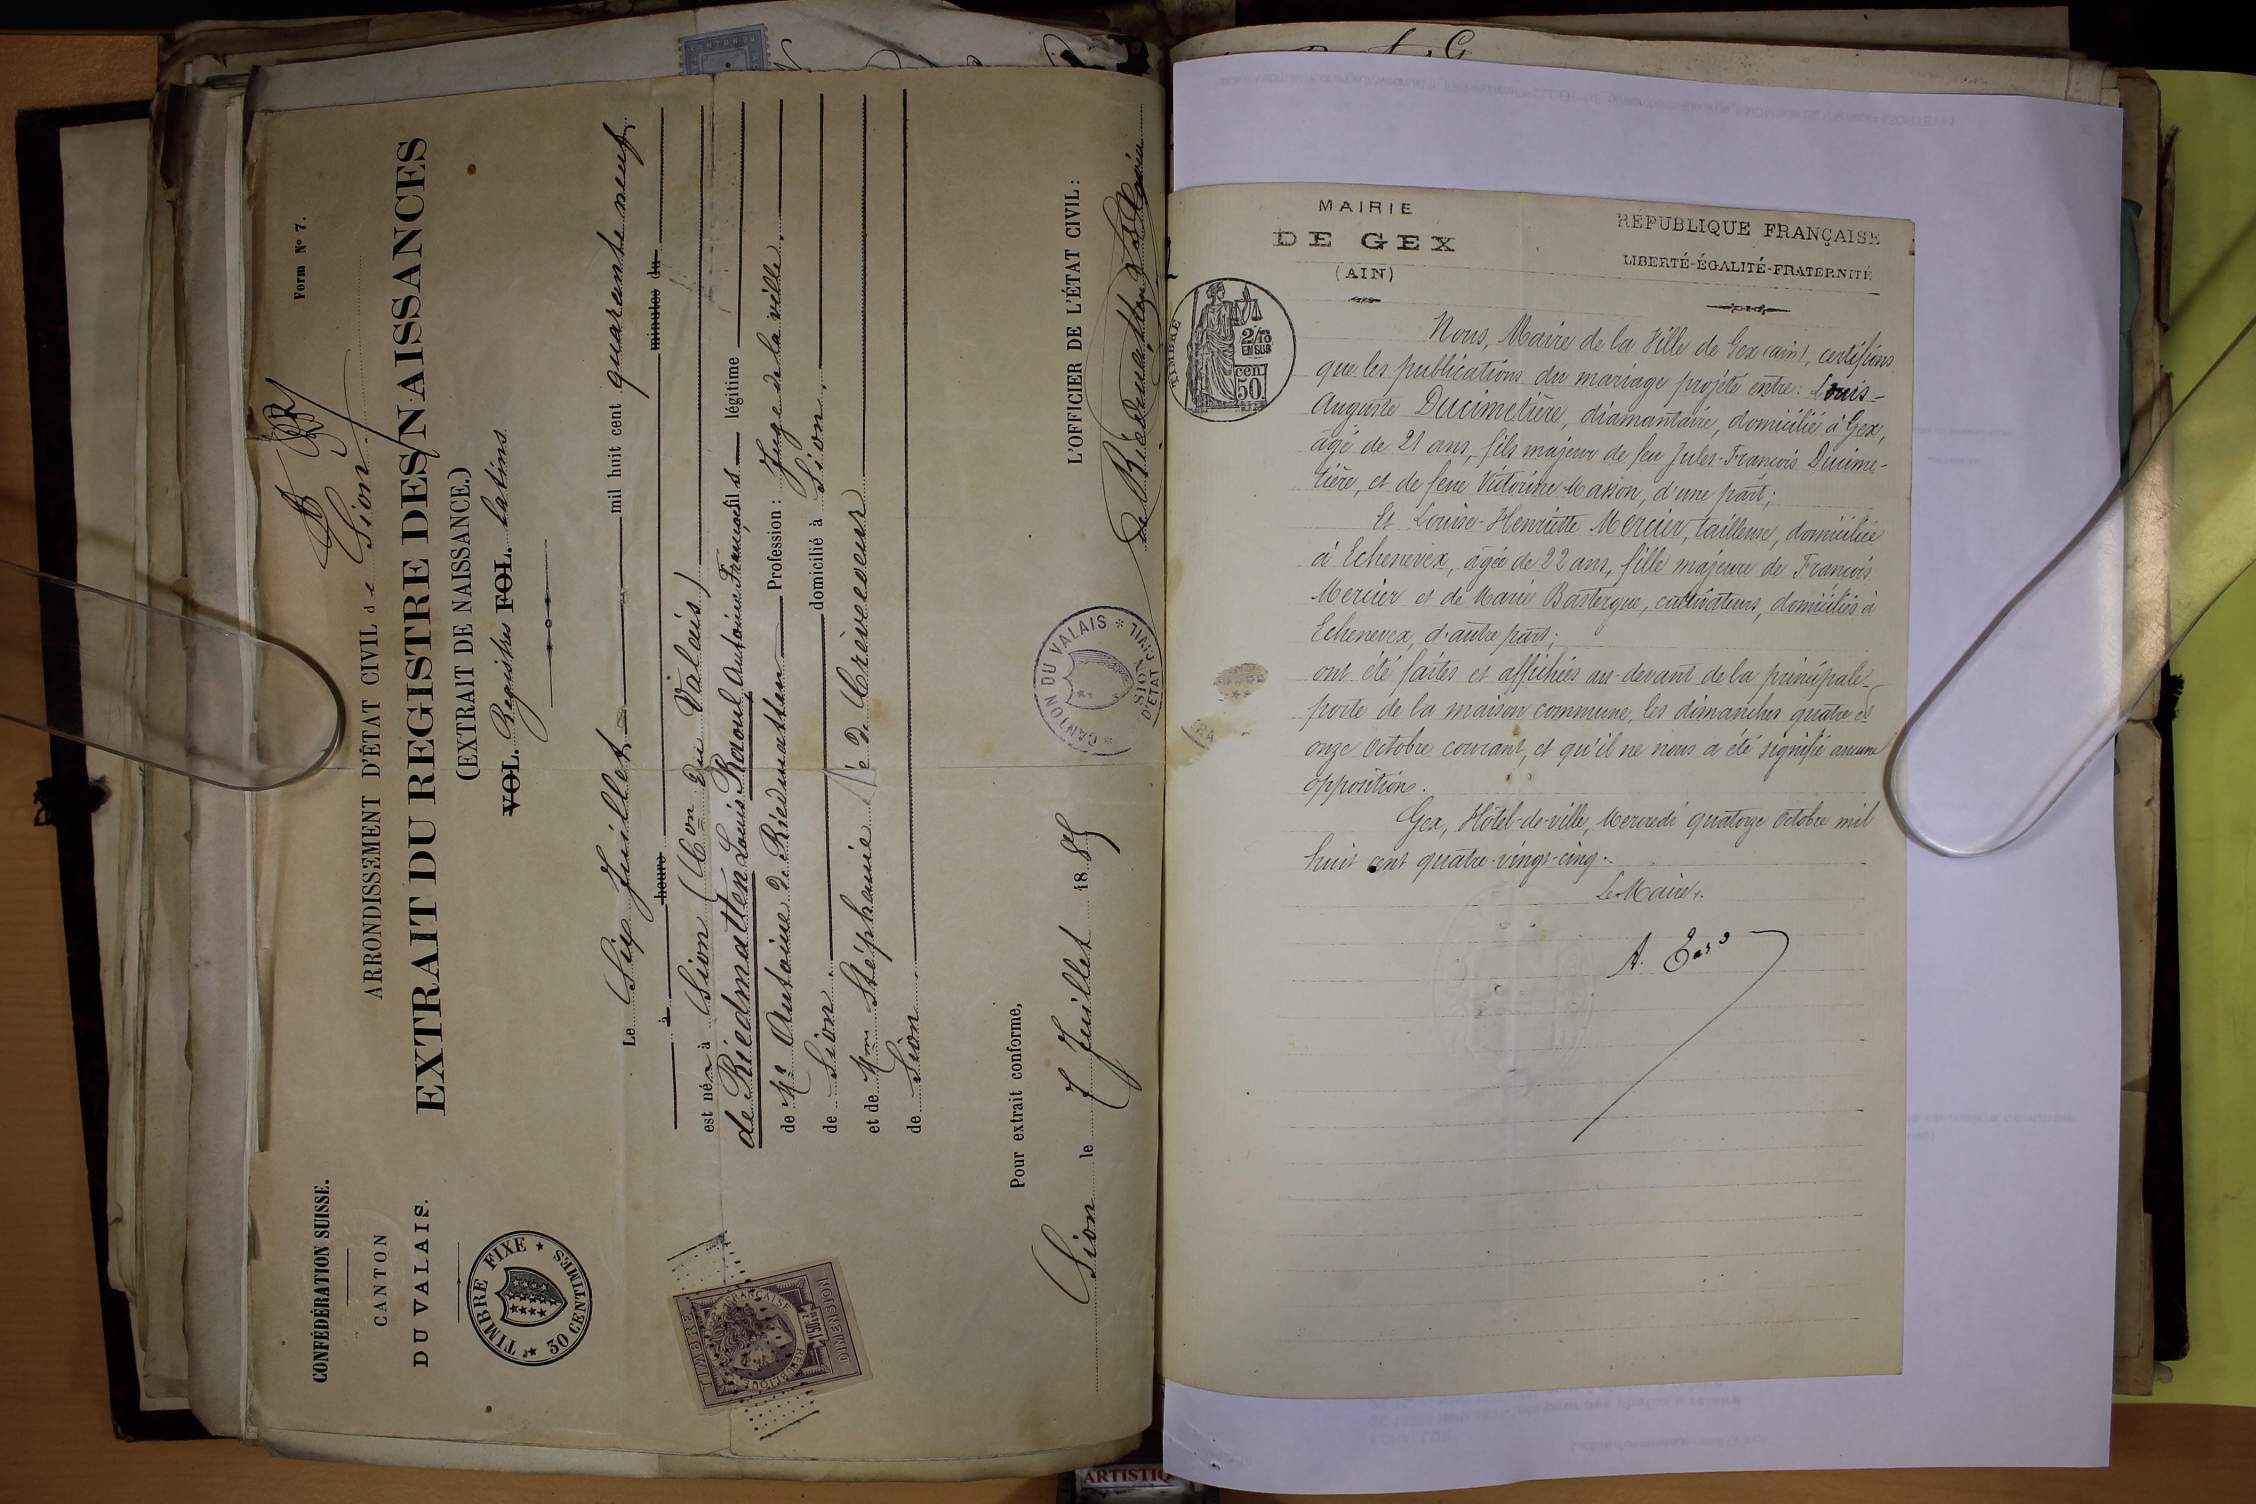 CONFÉDÉRATION SUISSE.
CANTON
DU VALAIS.
TIMBRE FIXE
30 CENTIMES
Form Nº 7.
ARRONDISSEMENT D'ÉTAT CIVIL de Sion
EXTRAIT DU REGISTRE DES NAISSANCES
(EXTRAIT DE NAISSANCE.)
VOL. Registres FOL. latins
Le Six Juillet mil huit cent quarante neuf
à heure minutes du
est né à Sion (Con du Valais)
de Riedmatten Louis Raoul Antoine François fils légitime
de Mr Antoine de Riedmatten Profession : Juge de la ville,
de Sion, domicilié à Sion,
et de Mme Stéphanie née de Crèvecoeur
de Sion
Pour extrait conforme,
Sion le 7 Juillet 1885
L'OFFICIER DE L'ÉTAT CIVIL :
CANTON DU VALAIS
SION
D'ÉTAT CIVIL
TIMBRE
RÉPUBLIQUE FRANÇAISE
DIMENSION
MAIRIE
DE GEX
(AIN)
RÉPUBLIQUE FRANÇAISE
LIBERTÉ-ÉGALITÉ-FRATERNITÉ
TIMBRE
2/10
EN SUS
50
cen
Nous, Maire de la Ville de Gex (ain), certifions
que les publications du mariage projeté entre: Louis-
Auguste Ducimetière, diamantaire, domicilié à Gex,
âgé de 21 ans, fils majeur de feu Jules-François Ducime-
tière, et de feue Victorine Masson, d'une part;
Et Louise-Henriette Mercier, tailleuse, domiciliée
à Echenevex, âgée de 22 ans, fille majeure de François
Mercier et de Marie Bastergue, cultivateurs, domiciliés à
Echenevex, d'autre part;
ont été faites et affichées au-devant de la principale
porte de la maison commune, les dimanches quatre et
onze Octobre courant, et qu'il ne nous a été signifié aucune
opposition.
Gex, Hôtel-de-ville, Mercredi quatorze Octobre mil
huit cent quatre-vingt-cinq.
Le Maire,
A.
ARTISTIQ